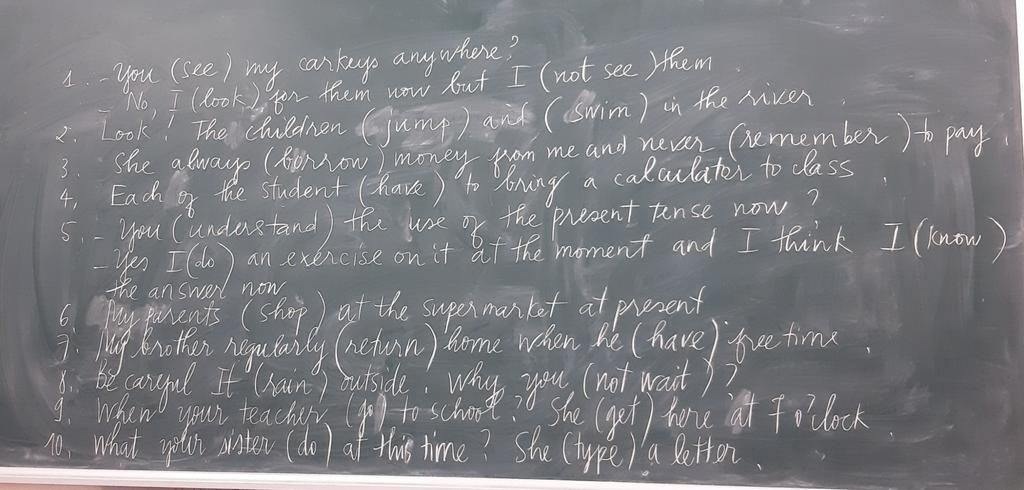 1. - You (see) my carkeys anywhere?
- No, I (look) for them now but I (not see) them.
2. Look! The children (jump) and (swim) in the river.
3. She always (borrow) money from me and never (remember) to pay.
4. Each of the student (have) to bring a calculator to class.
5. - You (understand) the use of the present tense now?
- Yes I (do) an exercise on it at the moment and I think I (know)
the answer now
6. My parents (shop) at the supermarket at present
7. My brother regularly (return) home when he (have) free time.
8. Be careful It (rain) outside. Why you (not wait)?
9. When your teacher (go) to school? She (get) here at 7 o'clock.
10. What your sister (do) at this time? She (type) a letter.